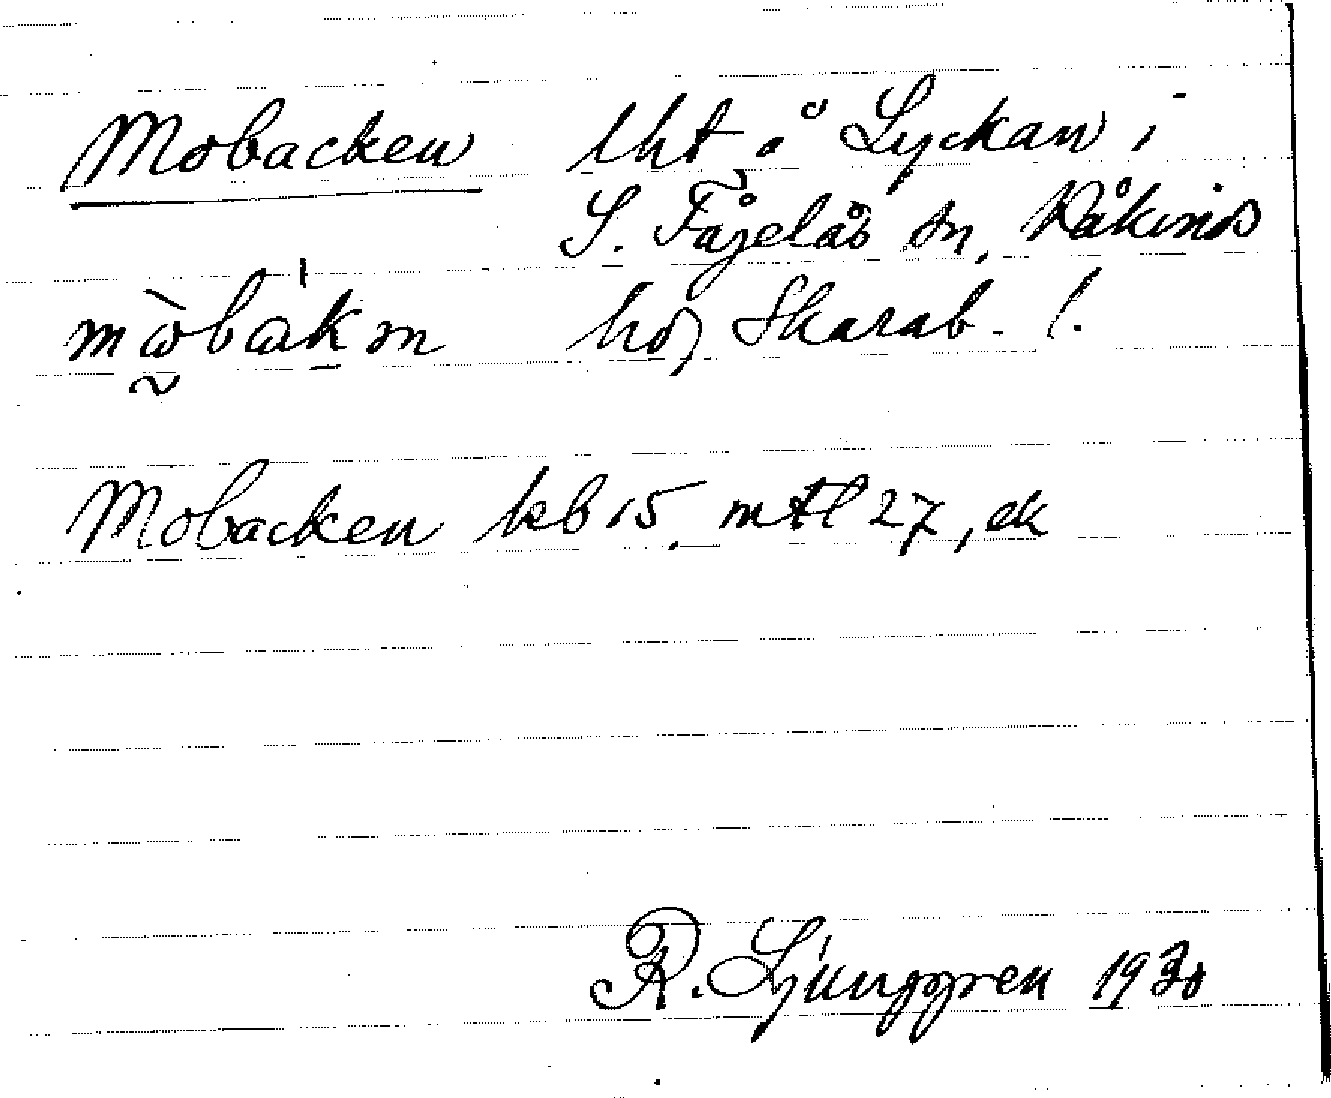 Mobacken lht å Lyckan i
S. Fågelås sn, Kåkinds
hd, Skarab. l.
Mobacken kb 15, mtl 27, ek
R. Ljunggren 1930